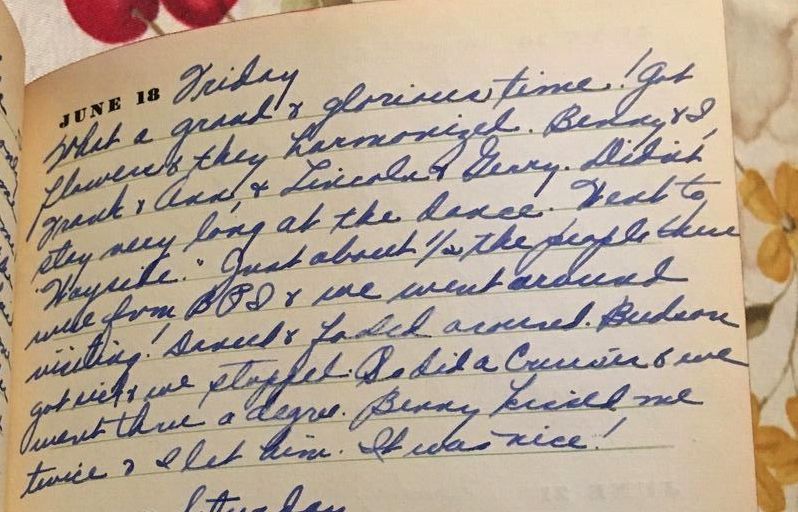 JUNE 18 Friday
What a grand & glorious time! Got
flowers & they harmonized. Benny & I,
Frank & Ann, & Lincoln & Gerry. Didn't
stay very long at the dance. Went to
"Wayside." Just about 1/2 the people there
were from BPI & we went around
visiting! Danced & fooled around. Budson
got sick & we stopped. So did a Cruiser & we
went thru a degree. Benny kissed me
twice & I let him. It was nice!